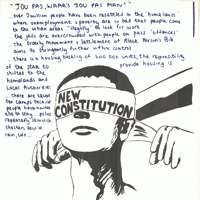 "JOU PAS, WAAR'S JOU PAS MAN!"
over 3 million people have been resettled in the 'homelands'
where unemployment & poverty are so bad that people come
to the urban areas "illegally" to look for work
the jails are overcrowded with people on pass 'offences'
the Orderly Movement & Settlement of Black Persons Bill
aims to stringently further influx control
there is a housing backlog of 200 000 units, the responsibility
of the state to provide housing is
shifted to the
homelands and
Local Authorities
there are squatter
camps because
people have nowhere
else to stay police
repeatedly demolish
shelters despite
rain, cold
NEW
CONSTITUTION